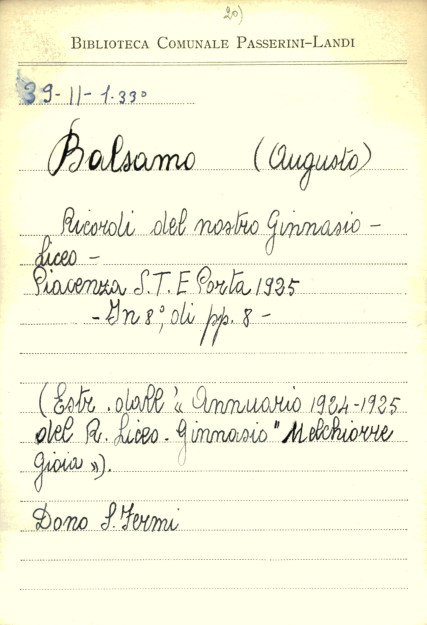 20)
BIBLIOTECA COMUNALE PASSERINI-LANDI
39-II-1.33º
Balsamo (Augusto)
Ricordi del nostro Ginnasio -
Liceo -
Piacenza S.T.E Porta 1925
- In 8º, di pp. 8 -
(Estr. dall'« Annuario 1924-1925
del R. Liceo-Ginnasio "Melchiorre
Gioia »).
Dono S. Fermi